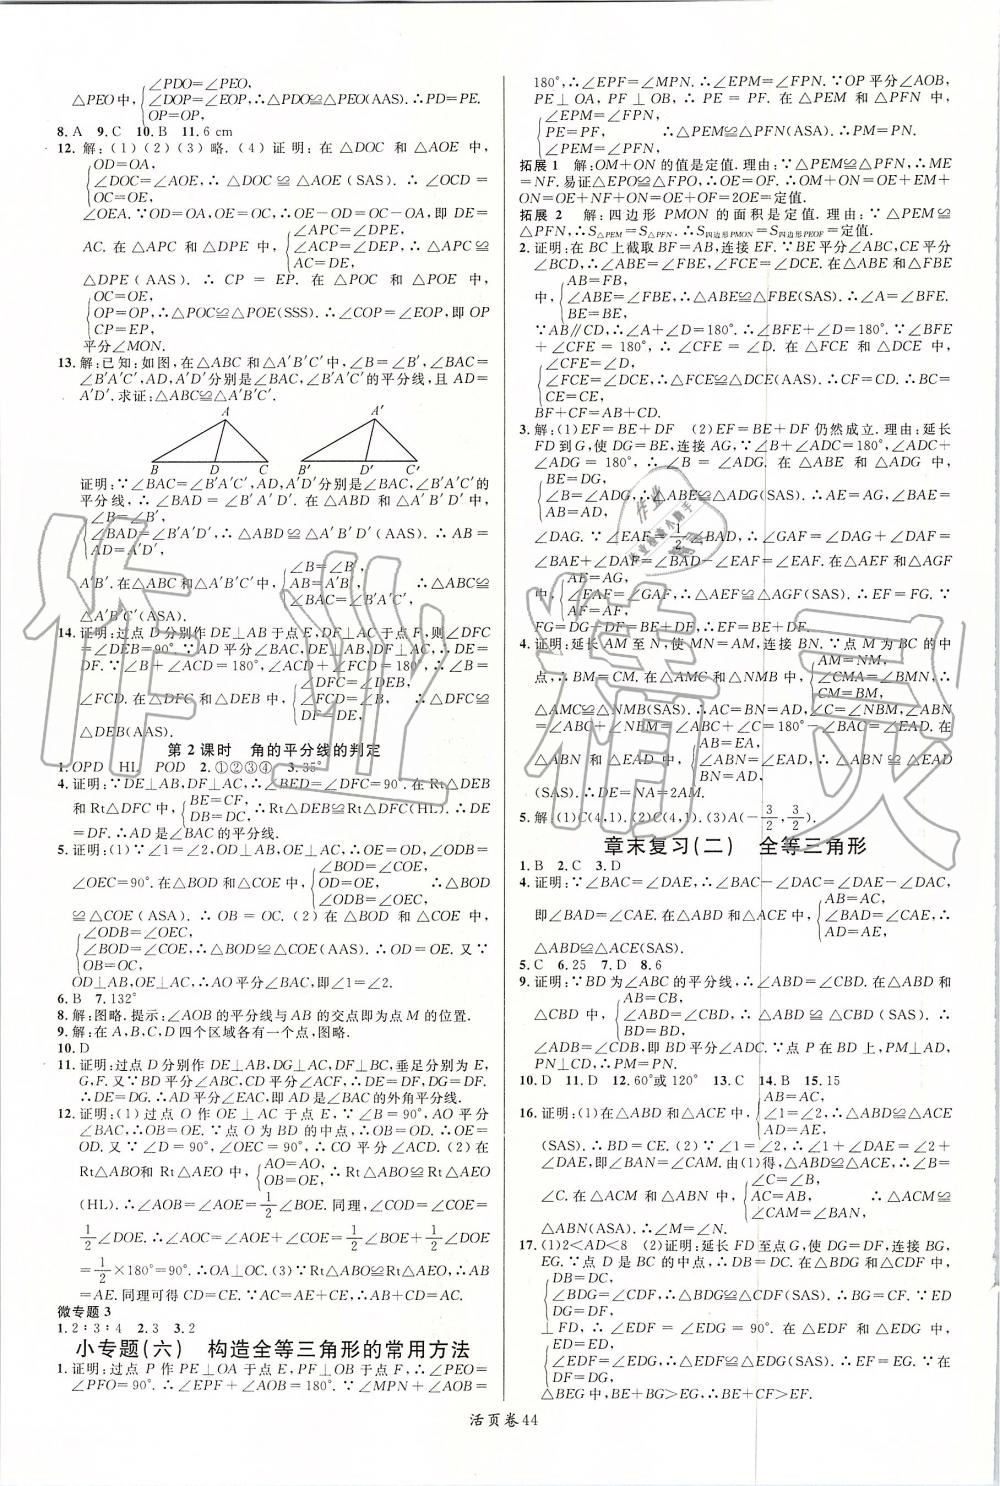 ∠PDO=∠PEO,
△PEO中,{∠DOP=∠EOP,∴△PDO≌△PEO(AAS).∴PD=PE.
OP=OP,
8.A 9.C 10.B 11.6 cm
12.解:(1)(2)(3)略.(4)证明:在△DOC 和△AOE 中,
OD=OA,
∠DOC=∠AOE,∴△DOC≌△AOE(SAS).∴∠OCD=
OC=OE,
∠OEA.∵OD=OA,OE=OC,∴OE-OD=OC-OA,即 DE=
∠APC=∠DPE,
AC.在△APC 和△DPE 中,{∠ACP=∠DEP,∴△APC≌
AC=DE,
△DPE(AAS).∴CP=EP.在△POC 和△POE 中,
OC=OE,
OP=OP,∴△POC≌△POE(SSS).∴∠COP=∠EOP,即OP
CP=EP,
平分∠MON.
13.解:已知:如图,在△ABC和△A′B′C′中,∠B=∠B′,∠BAC=
∠B′A′C′,AD,A′D′分别是∠BAC,∠B′A′C′的平分线,且AD=
A′D′.求证:△ABC≌△A′B′C′.
A A′
B D C B′ D′ C′
证明:∵∠BAC=∠B′A′C′,AD,A′D′分别是∠BAC,∠B′A′C′的
平分线,∴∠BAD=∠B′A′D′.在△ABD 和△A′B′D′中,
∠B=∠B′,
∠BAD=∠B′A′D′,∴△ABD≌△A′B′D′(AAS).∴AB=
AD=A′D′,
∠B=∠B′,
A′B′.在△ABC和△A′B′C′中,{AB=A′B′, ∴△ABC≌
∠BAC=∠B′A′C′,
△A′B′C′(ASA).
14.证明:过点D分别作DE⊥AB于点E,DF⊥AC于点F,则∠DFC
=∠DEB=90°.∵AD平分∠BAC,DE⊥AB,DF⊥AC,∴DE=
DF.∵∠B+∠ACD=180°,∠ACD+∠FCD=180°,∴∠B=
∠DFC=∠DEB,
∠FCD.在△DFC 和△DEB 中,{∠FCD=∠B, ∴△DFC≌
DF=DE,
△DEB(AAS).
第2课时 角的平分线的判定
1.OPD HL POD 2.①②③④ 3.35°
4.证明:∵DE⊥AB,DF⊥AC,∴∠BED=∠DFC=90°.在Rt△DEB
和Rt△DFC中,{BE=CF,∴Rt△DEB≌Rt△DFC(HL).∴DE
DB=DC,
=DF.∴AD是∠BAC的平分线.
5.证明:(1)∵∠1=∠2,OD⊥AB,OE⊥AC,∴OE=OD,∠ODB=
∠DOB=∠EOC,
∠OEC=90°.在△BOD 和△COE 中,{OD=OE, ∴△BOD
∠ODB=∠OEC,
≌△COE(ASA).∴OB=OC.(2)在△BOD 和△COE 中,
∠ODB=∠OEC,
∠BOD=∠COE,∴△BOD≌△COE(AAS).∴OD=OE.又∵
OB=OC,
OD⊥AB,OE⊥AC,∴AO平分∠BAC,即∠1=∠2.
6.B 7.132°
8.解:图略.提示:∠AOB的平分线与AB的交点即为点M的位置.
9.解:在A,B,C,D四个区域各有一个点,图略.
10.D
11.证明:过点D分别作DE⊥AB,DG⊥AC,DF⊥BC,垂足分别为E,
G,F.又∵BD平分∠ABC,CD平分∠BCG,∴DE=DF,DG=DF.
∴DE=DG.∴AD平分∠EAC,即AD是∠BAC的外角平分线.
12.证明:(1)过点O作OE⊥AC于点E,∵∠B=90°,AO平分
∠BAC,∴OB=OE.∵点O为BD的中点,∴OB=OD.∴OE=
OD.又∵∠D=90°,∠OEC=90°,∴CO平分∠ACD.(2)在
Rt△ABO和Rt△AEO中,{AO=AO,∴Rt△ABO≌Rt△AEO
OB=OE.
(HL).∴∠AOB=∠AOE=1/2∠BOE.同理,∠COD=∠COE=
1/2∠DOE.∴∠AOC=∠AOE+∠COE=1/2∠BOE+1/2∠DOE
=1/2×180°=90°.∴OA⊥OC.(3)∵Rt△ABO≌Rt△AEO,∴AB
=AE.同理可得CD=CE.∵AC=AE+CE,∴AB+CD=AC.
微专题3
1.2∶3∶4 2.3 3.2
小专题(六) 构造全等三角形的常用方法
1.证明:过点P作PE⊥OA于点E,PF⊥OB于点F,∴∠PEO=
∠PFO=90°.∴∠EPF+∠AOB=180°.∵∠MPN+∠AOB=
180°,∴∠EPF=∠MPN.∴∠EPM=∠FPN.∵OP平分∠AOB,
PE⊥OA,PF⊥OB,∴PE=PF.在△PEM 和△PFN 中,
∠EPM=∠FPN,
PE=PF, ∴△PEM≌△PFN(ASA).∴PM=PN.
∠PEM=∠PFN,
拓展1 解:OM+ON的值是定值.理由:∵△PEM≌△PFN,∴ME
=NF.易证△EPO≌△FPO,∴OE=OF.∴OM+ON=OE+EM+
ON=OE+NF+ON=OE+OF=2OE=定值.
拓展2 解:四边形PMON的面积是定值.理由:∵△PEM≌
△PFN,∴S△PEM=S△PFN.∴S四边形PMON=S四边形PEOF=定值.
2.证明:在BC上截取BF=AB,连接EF.∵BE平分∠ABC,CE平分
∠BCD,∴∠ABE=∠FBE,∠FCE=∠DCE.在△ABE和△FBE
AB=FB,
中,{∠ABE=∠FBE,∴△ABE≌△FBE(SAS).∴∠A=∠BFE.
BE=BE,
∵AB∥CD,∴∠A+∠D=180°.∴∠BFE+∠D=180°.∵∠BFE
+∠CFE=180°,∴∠CFE=∠D.在△FCE 和△DCE 中,
∠CFE=∠D,
∠FCE=∠DCE,∴△FCE≌△DCE(AAS).∴CF=CD.∴BC=
CE=CE,
BF+CF=AB+CD.
3.解:(1)EF=BE+DF (2)EF=BE+DF仍然成立.理由:延长
FD到G,使DG=BE,连接AG,∵∠B+∠ADC=180°,∠ADC+
∠ADG=180°,∴∠B=∠ADG.在△ABE 和△ADG 中,
BE=DG,
∠B=∠ADG,∴△ABE≌△ADG(SAS).∴AE=AG,∠BAE=
AB=AD,
∠DAG.∵∠EAF=1/2∠BAD,∴∠GAF=∠DAG+∠DAF=
∠BAE+∠DAF=∠BAD-∠EAF=∠EAF.在△AEF和△AGF
AE=AG,
中,{∠EAF=∠GAF,∴△AEF≌△AGF(SAS).∴EF=FG.∵
AF=AF,
FG=DG+DF=BE+DF,∴EF=BE+DF.
4.证明:延长AM至N,使MN=AM,连接BN.∵点M为BC的中
AM=NM,
点,∴BM=CM.在△AMC和△NMB中,{∠CMA=∠BMN,∴
CM=BM,
△AMC≌△NMB(SAS).∴AC=BN=AD,∠C=∠NBM,∠ABN
=∠ABC+∠NBM=∠ABC+∠C=180°-∠BAC=∠EAD.在
EA=AB,
△EAD 和△ABN 中,{∠EAD=∠ABN,∴△EAD≌△ABN
BN=AD,
(SAS).∴DE=NA=2AM.
5.解:(1)C(4,1).(2)C(4,1).(3)A(-3/2,3/2).
章末复习(二) 全等三角形
1.B 2.C 3.D
4.证明:∵∠BAC=∠DAE,∴∠BAC-∠DAC=∠DAE-∠DAC,
AB=AC,
即∠BAD=∠CAE.在△ABD和△ACE中,{∠BAD=∠CAE,∴
AD=AE,
△ABD≌△ACE(SAS).
5.C 6.25 7.D 8.6
9.证明:∵BD为∠ABC的平分线,∴∠ABD=∠CBD.在△ABD和
AB=CB,
△CBD 中,{∠ABD=∠CBD,∴△ABD≌△CBD(SAS).∴
BD=BD,
∠ADB=∠CDB,即BD平分∠ADC.∵点P在BD上,PM⊥AD,
PN⊥CD,∴PM=PN.
10.D 11.D 12.60°或120° 13.C 14.B 15.15
AB=AC,
16.证明:(1)在△ABD和△ACE中,{∠1=∠2,∴△ABD≌△ACE
AD=AE,
(SAS).∴BD=CE.(2)∵∠1=∠2,∴∠1+∠DAE=∠2+
∠DAE,即∠BAN=∠CAM.由(1)得,△ABD≌△ACE,∴∠B=
∠C=∠B,
∠C.在△ACM 和△ABN 中,{AC=AB, ∴△ACM≌
∠CAM=∠BAN,
△ABN(ASA).∴∠M=∠N.
17.(1)2<AD<8 (2)证明:延长FD至点G,使DG=DF,连接BG,
EG.∵点D是BC的中点,∴DB=DC.在△BDG和△CDF中,
DB=DC,
∠BDG=∠CDF,∴△BDG≌△CDF(SAS).∴BG=CF.∵ED
DG=DF,
⊥FD,∴∠EDF=∠EDG=90°.在△EDF 和△EDG 中,
ED=ED,
∠EDF=∠EDG,∴△EDF≌△EDG(SAS).∴EF=EG.在
DF=DG,
△BEG中,BE+BG>EG,∴BE+CF>EF.
活页卷44
作业精灵